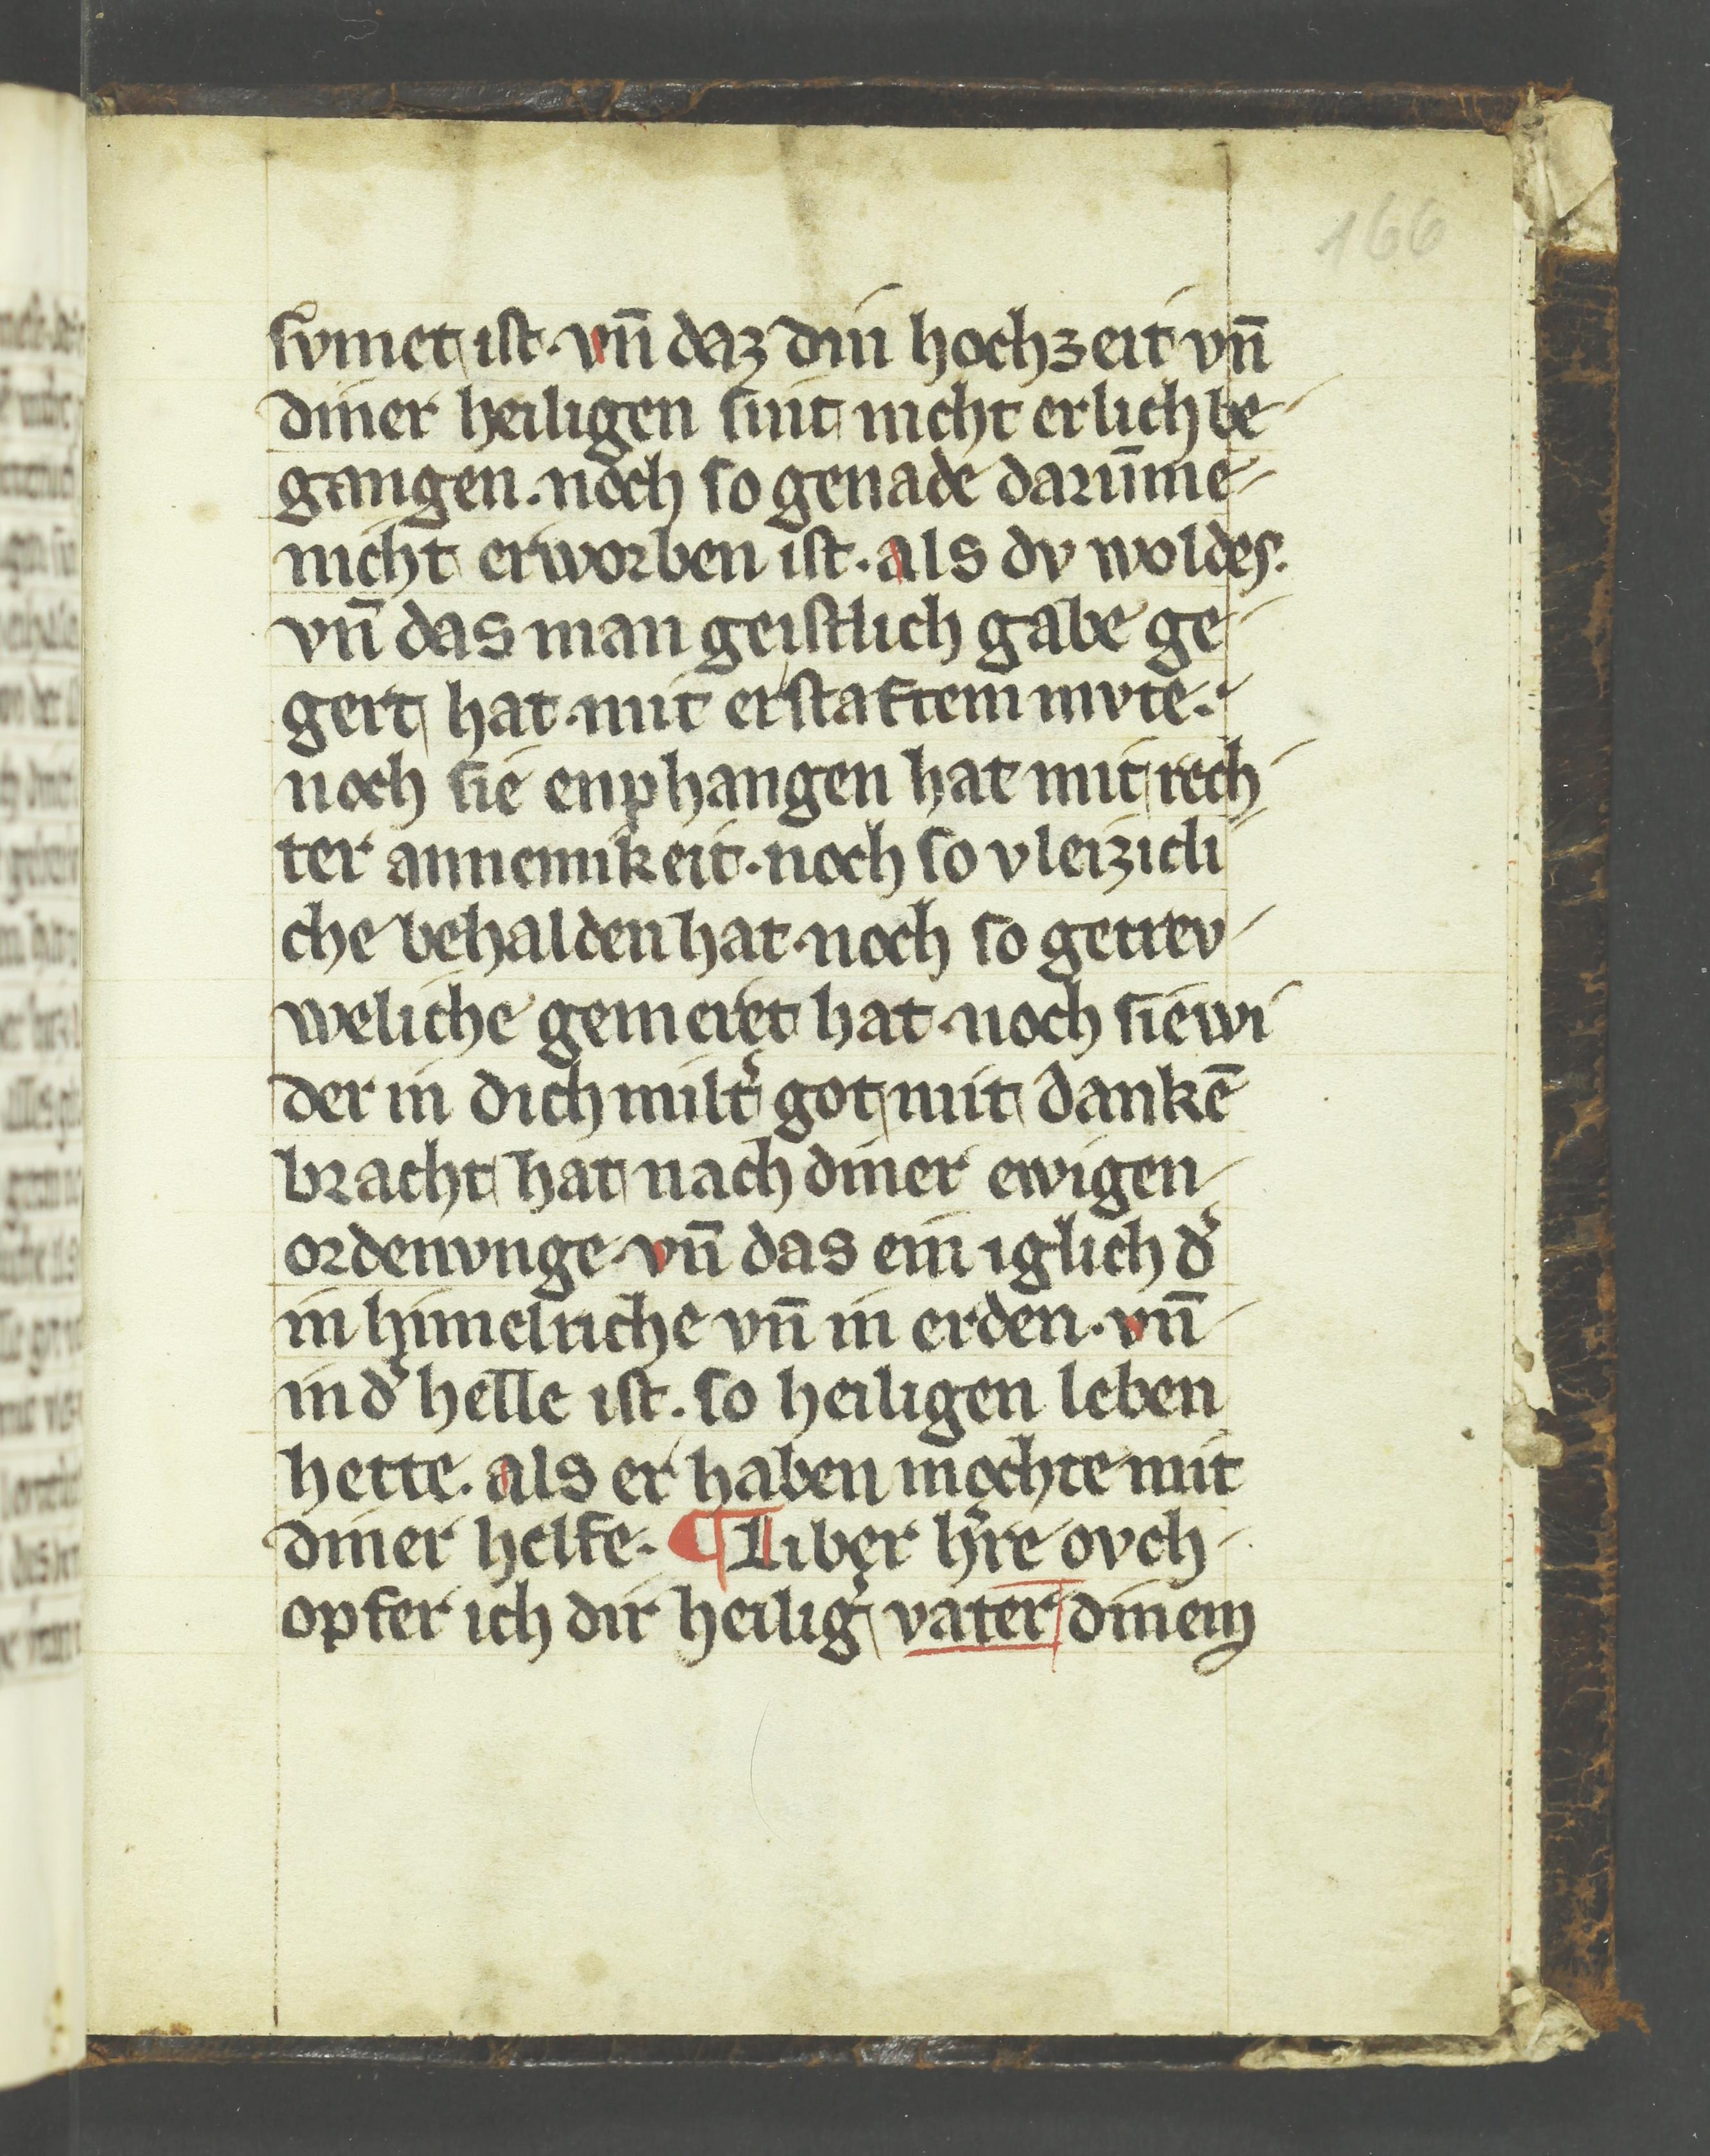 166
svmet ist. vn̄ daz din hochzeit vn̄
diner heiligen sint nicht erlich be-
gangen. noch so genade darūme-
nicht erworben ist. als dv woldes.
vn̄ das man geistlich gabe ge-
gert hat. mit erstaftem mvte.
noch sie enphangen hat mit rech-
ter annemikeit. noch so vleizicli
che behalden hat. noch so getrev-
weliche gemeret hat. noch sie wi
der in dich milt᾽ got mit dankē
bracht hat nach diner ewigen-
ordenvnge. vn̄ das ein iglich d᾽
in himelriche vn̄ in erden. vn̄-
in d᾽ helle ist. so heiligen leben
hette. als er haben mochte mit
diner helfe. ¶ Liber h᾽re ovch-
opfer ich dir heilig᾽ vater dinem